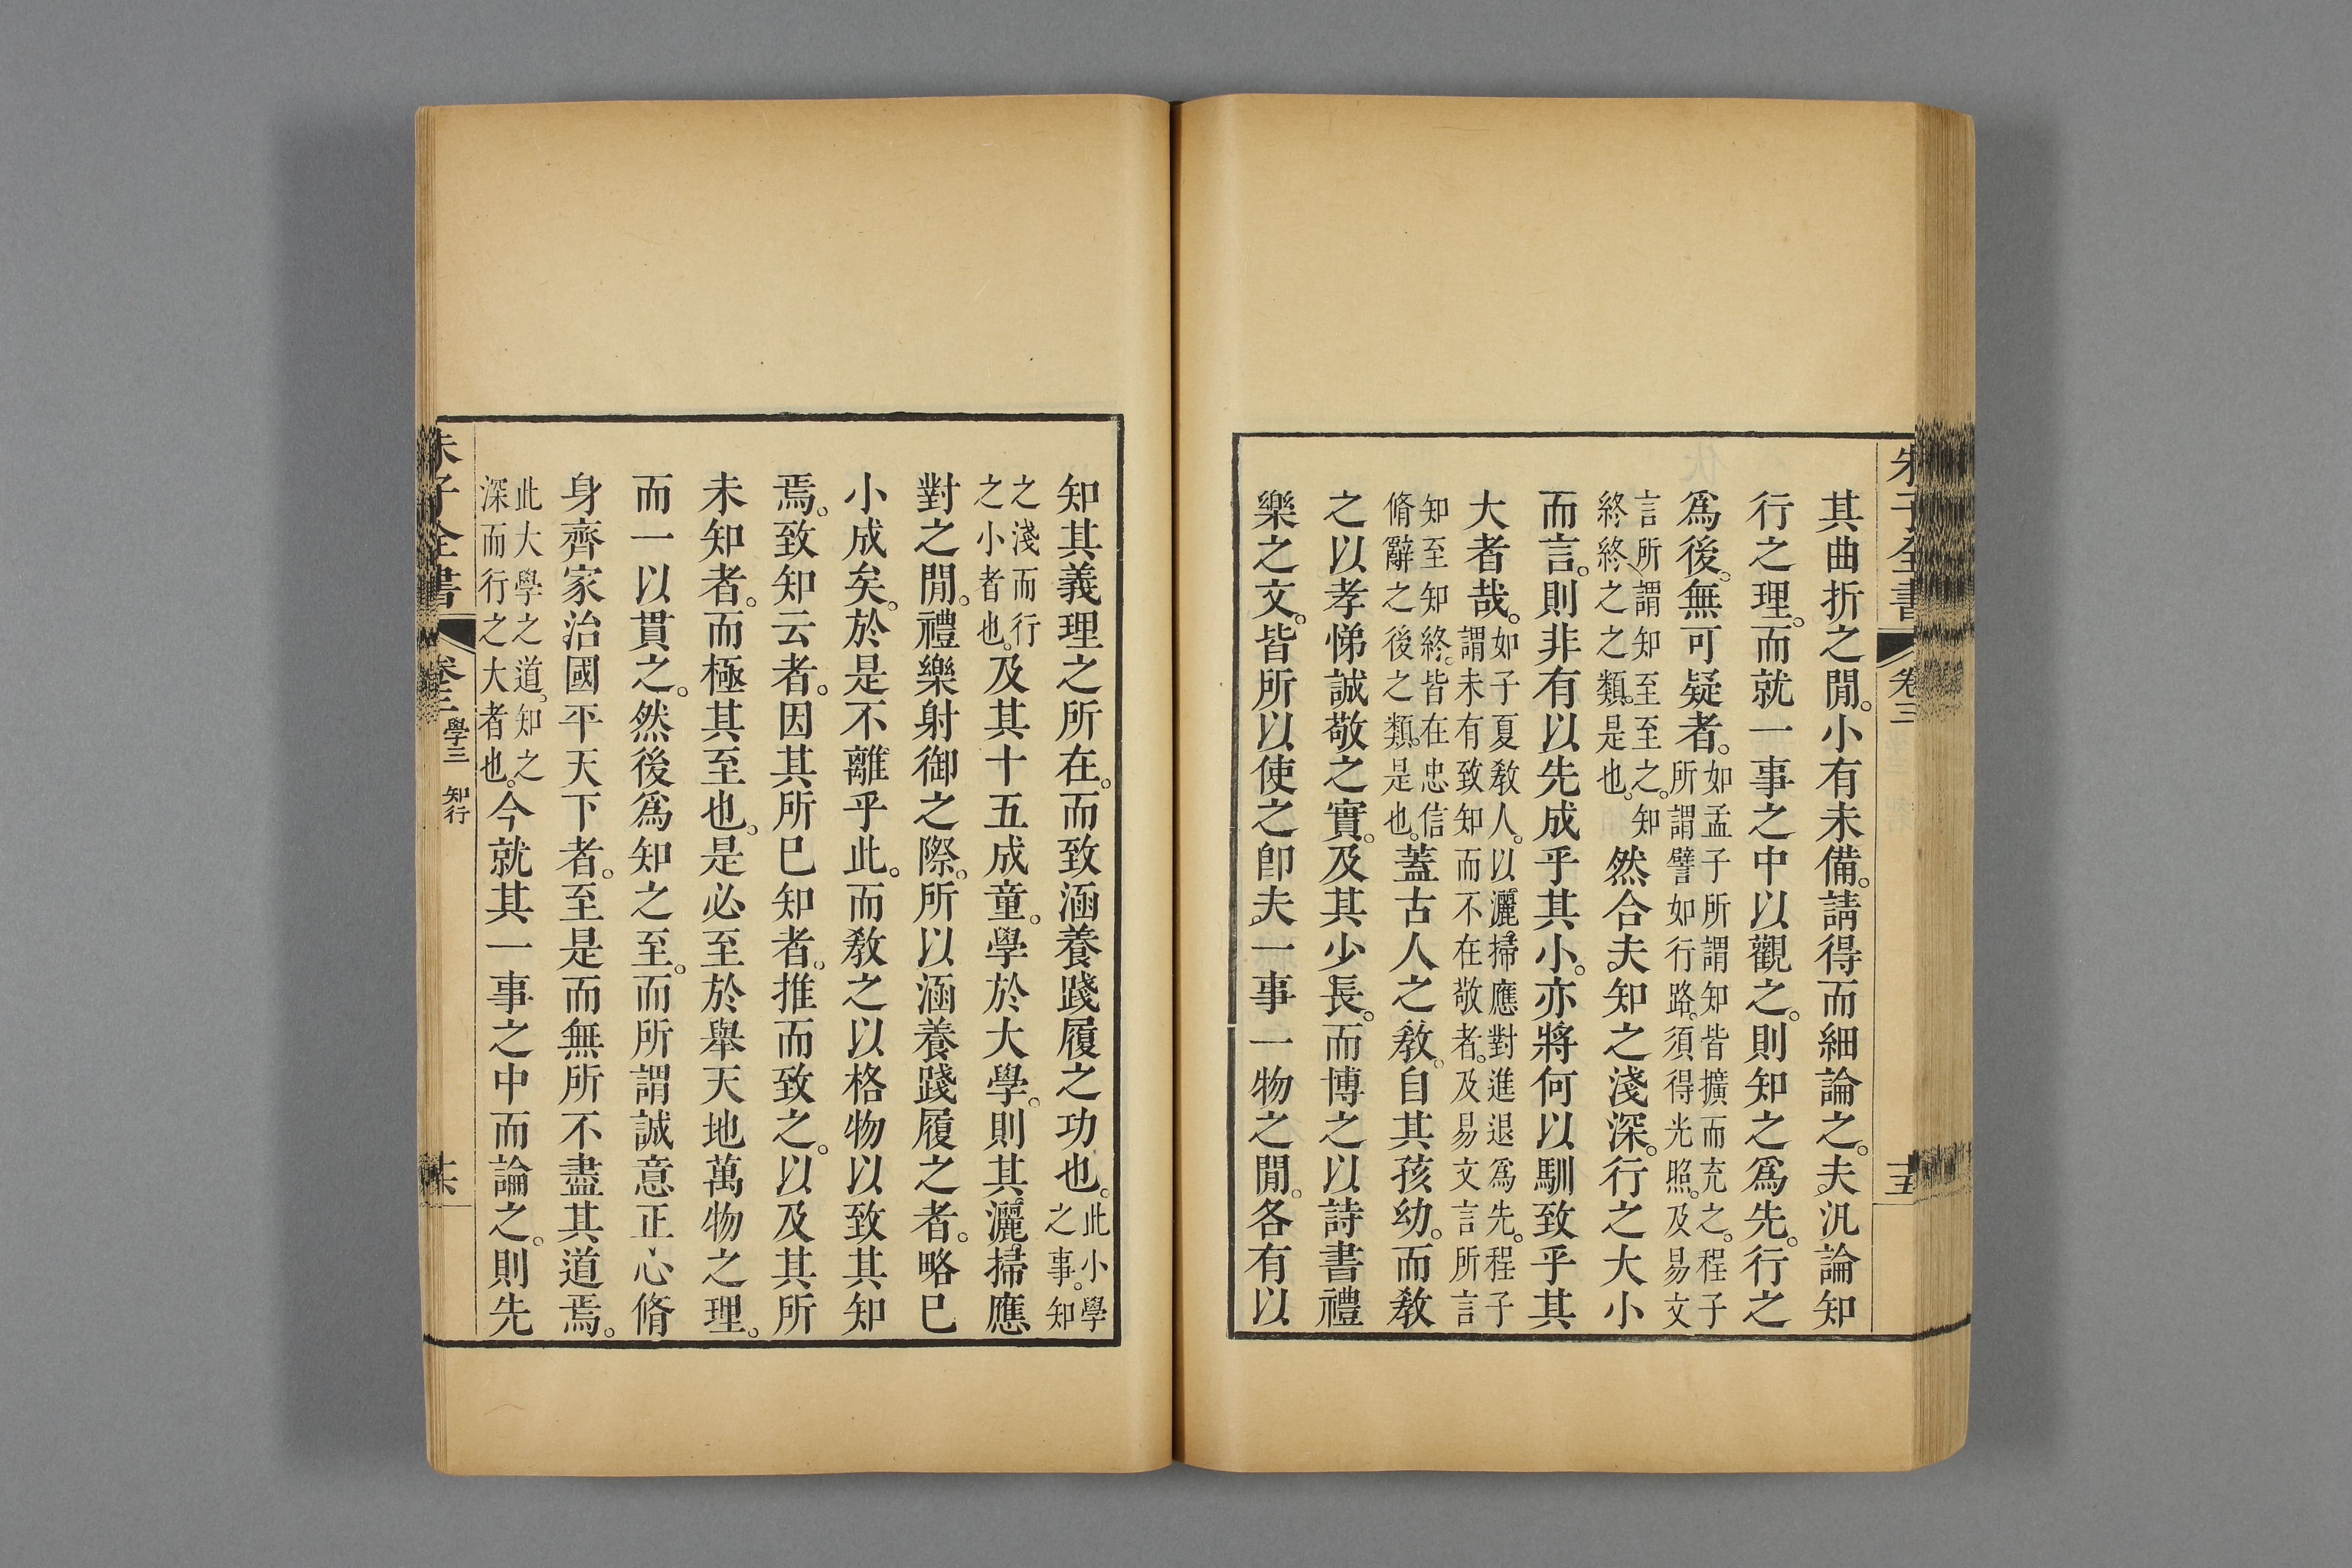 朱子全書 卷三 十五
其曲折之閒。小有未備。請得而細論之。夫汎論知
行之理。而就一事之中以觀之。則知之爲先。行之
爲後。無可疑者。如孟子所謂知皆擴而充之。程子
所謂譬如行路。須得光照。及易文
言所謂知至至之。知
終終之之類。是也。然合夫知之淺深。行之大小
而言。則非有以先成乎其小。亦將何以馴致乎其
大者哉。如子夏敎人。以灑掃應對進退爲先。程子
謂未有致知而不在敬者。及易文言所言
知至知終。皆在忠信
脩辭之後之類。是也。蓋古人之敎。自其孩幼。而敎
之以孝悌誠敬之實。及其少長。而博之以詩書禮
樂之文。皆所以使之卽夫一事一物之閒。各有以
知其義理之所在。而致涵養踐履之功也。此小學
之事。知
之淺而行
之小者也。及其十五成童。學於大學。則其灑掃應
對之閒。禮樂射御之際。所以涵養踐履之者。略已
小成矣。於是不離乎此。而敎之以格物以致其知
焉。致知云者。因其所已知者。推而致之。以及其所
未知者。而極其至也。是必至於舉天地萬物之理。
而一以貫之。然後爲知之至。而所謂誠意正心脩
身齊家治國平天下者。至是而無所不盡其道焉。
此大學之道。知之
深而行之大者也。今就其一事之中而論之。則先
朱子全書 卷三 學三 知行